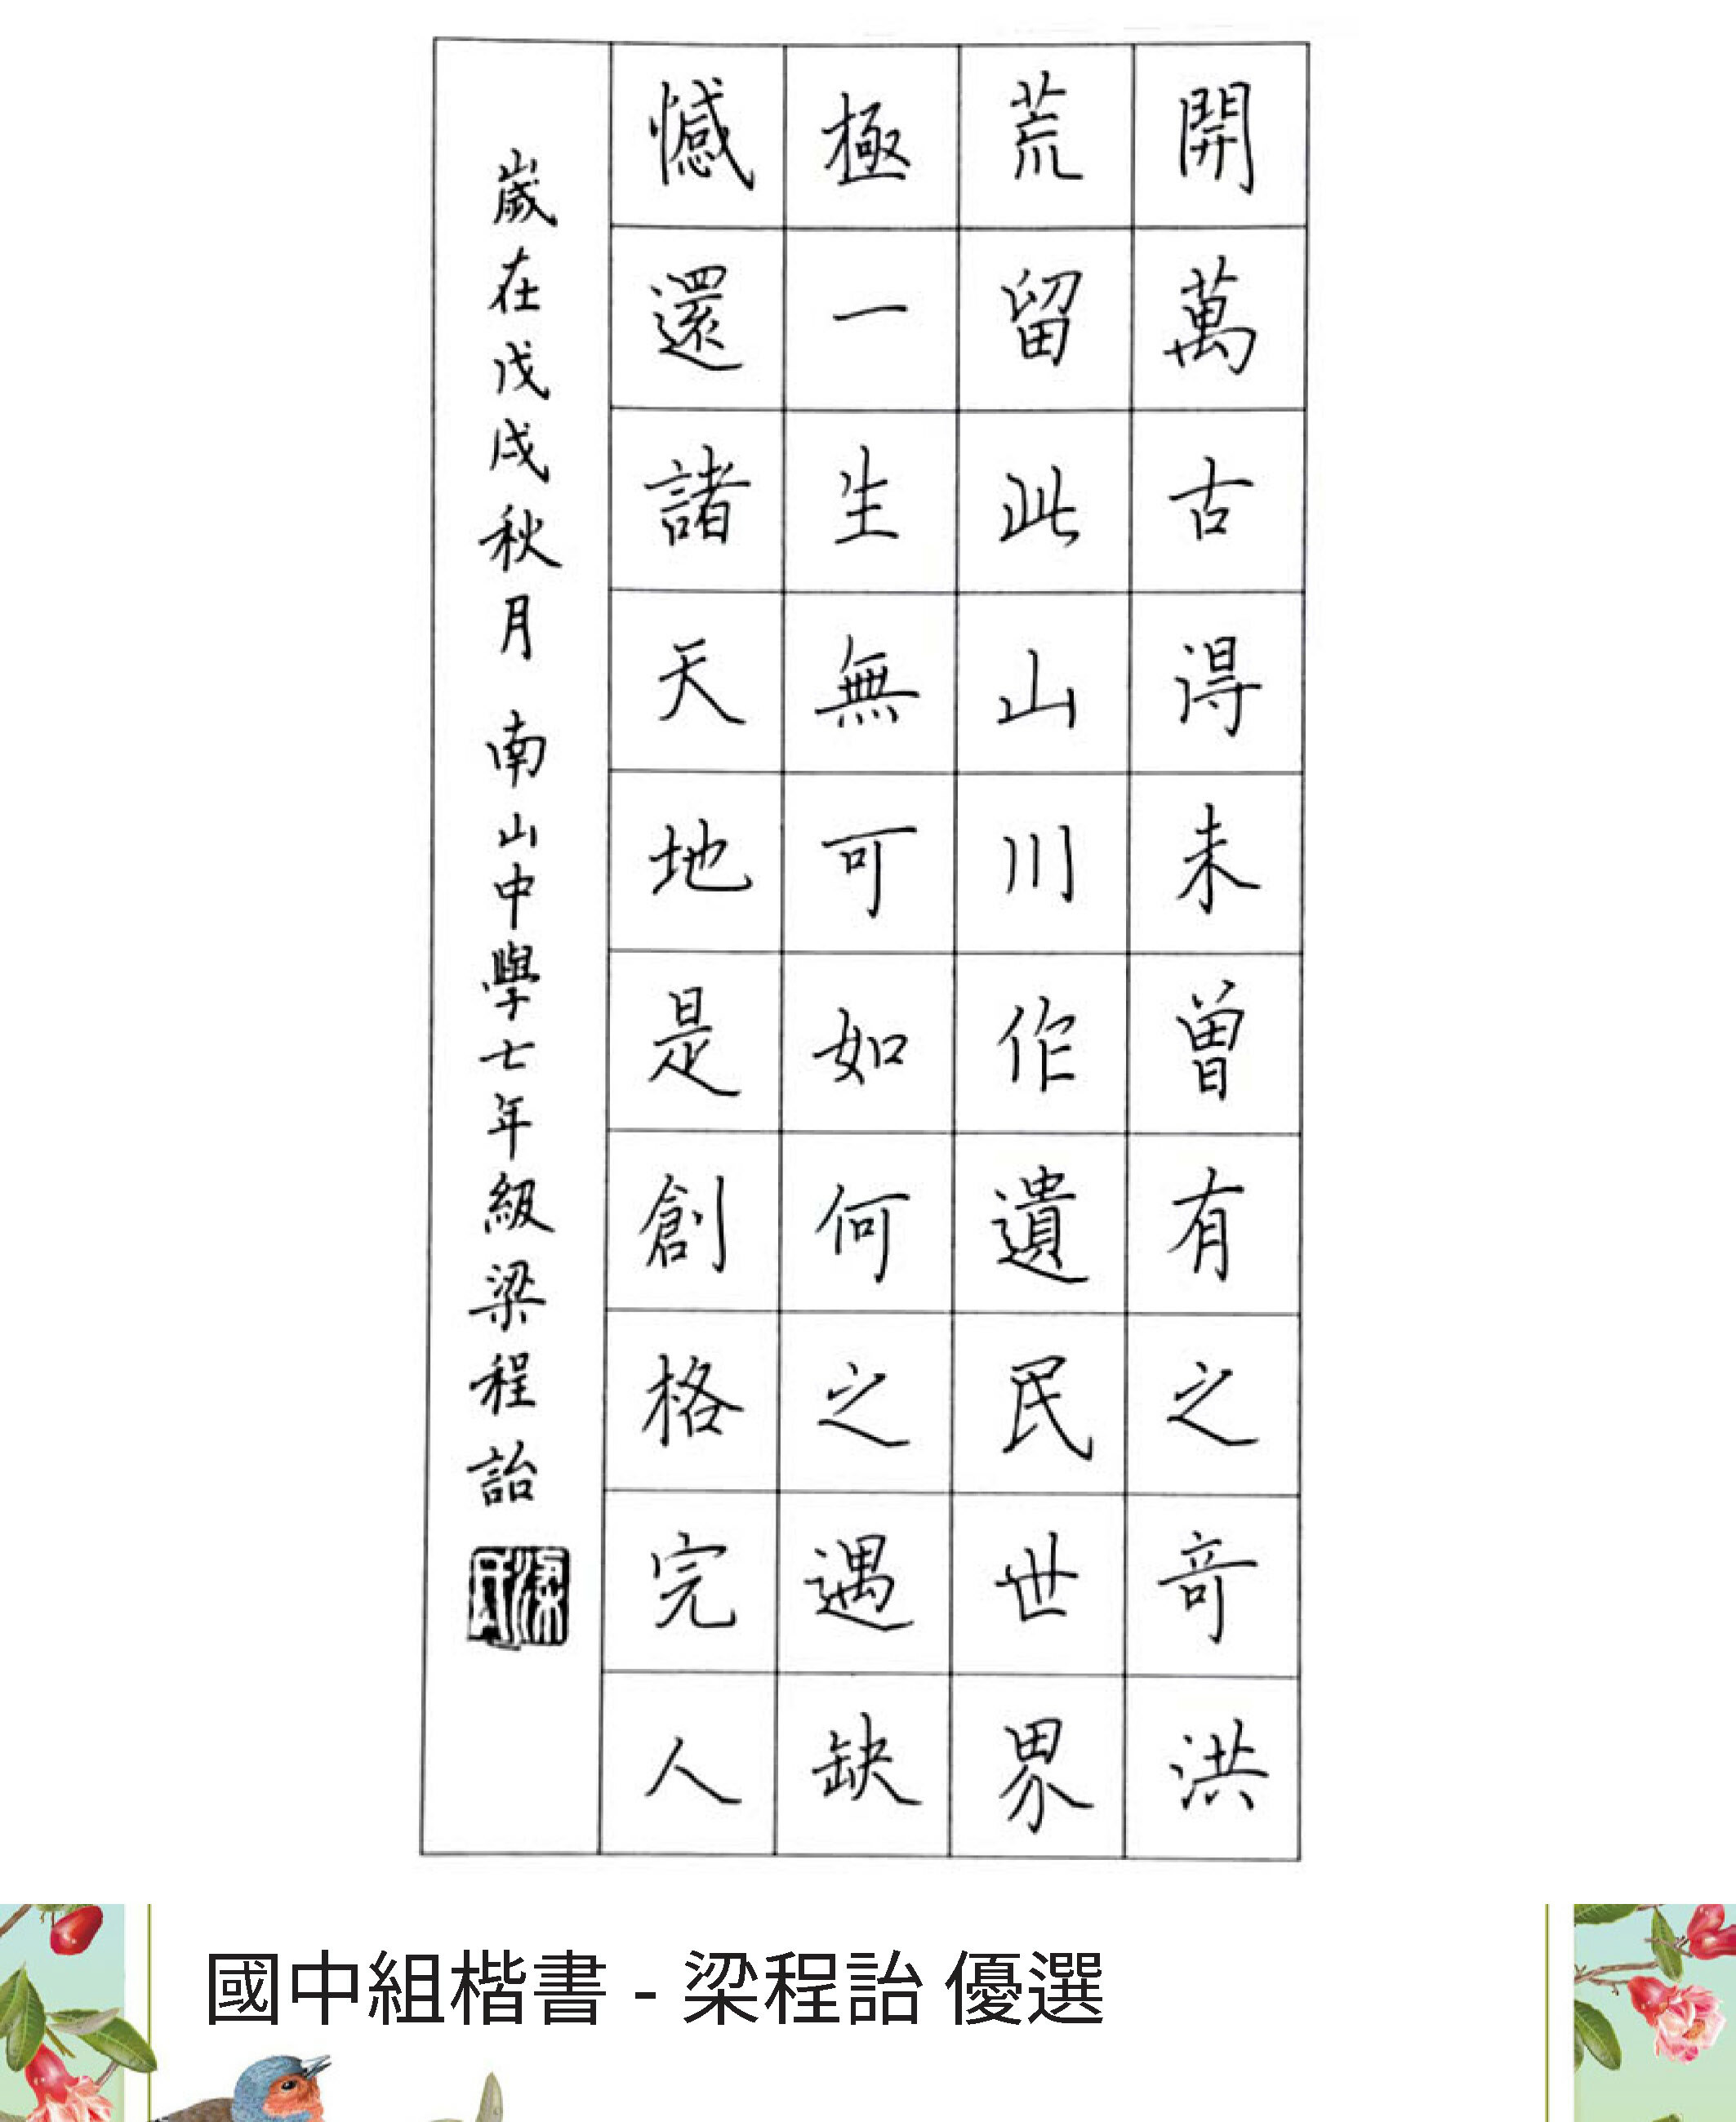 開萬古得未曾有之奇洪
荒留此山川作遺民世界
極一生無可如何之遇缺
憾還諸天地是創格完人
歲在戊戌秋月 南山中學七年級梁程詒
國中組楷書 - 梁程詒 優選